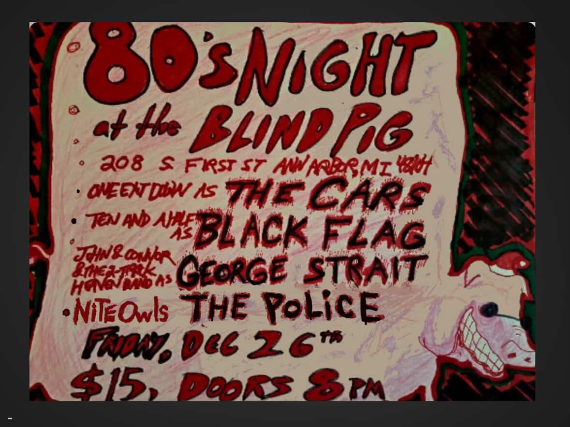 80's NIGHT
at the BLIND PIG
208 S FIRST ST ANN ARBOR, MI 48104
ONE EXIT DOWN AS THE CARS
TEN AND A HALF AS BLACK FLAG
JOHN & CONNOR & THE 2-TRACK AS GEORGE STRAIT
NiTE Owls THE POLICE
FRIDAY, DEC 26TH
$15, DOORS 8PM